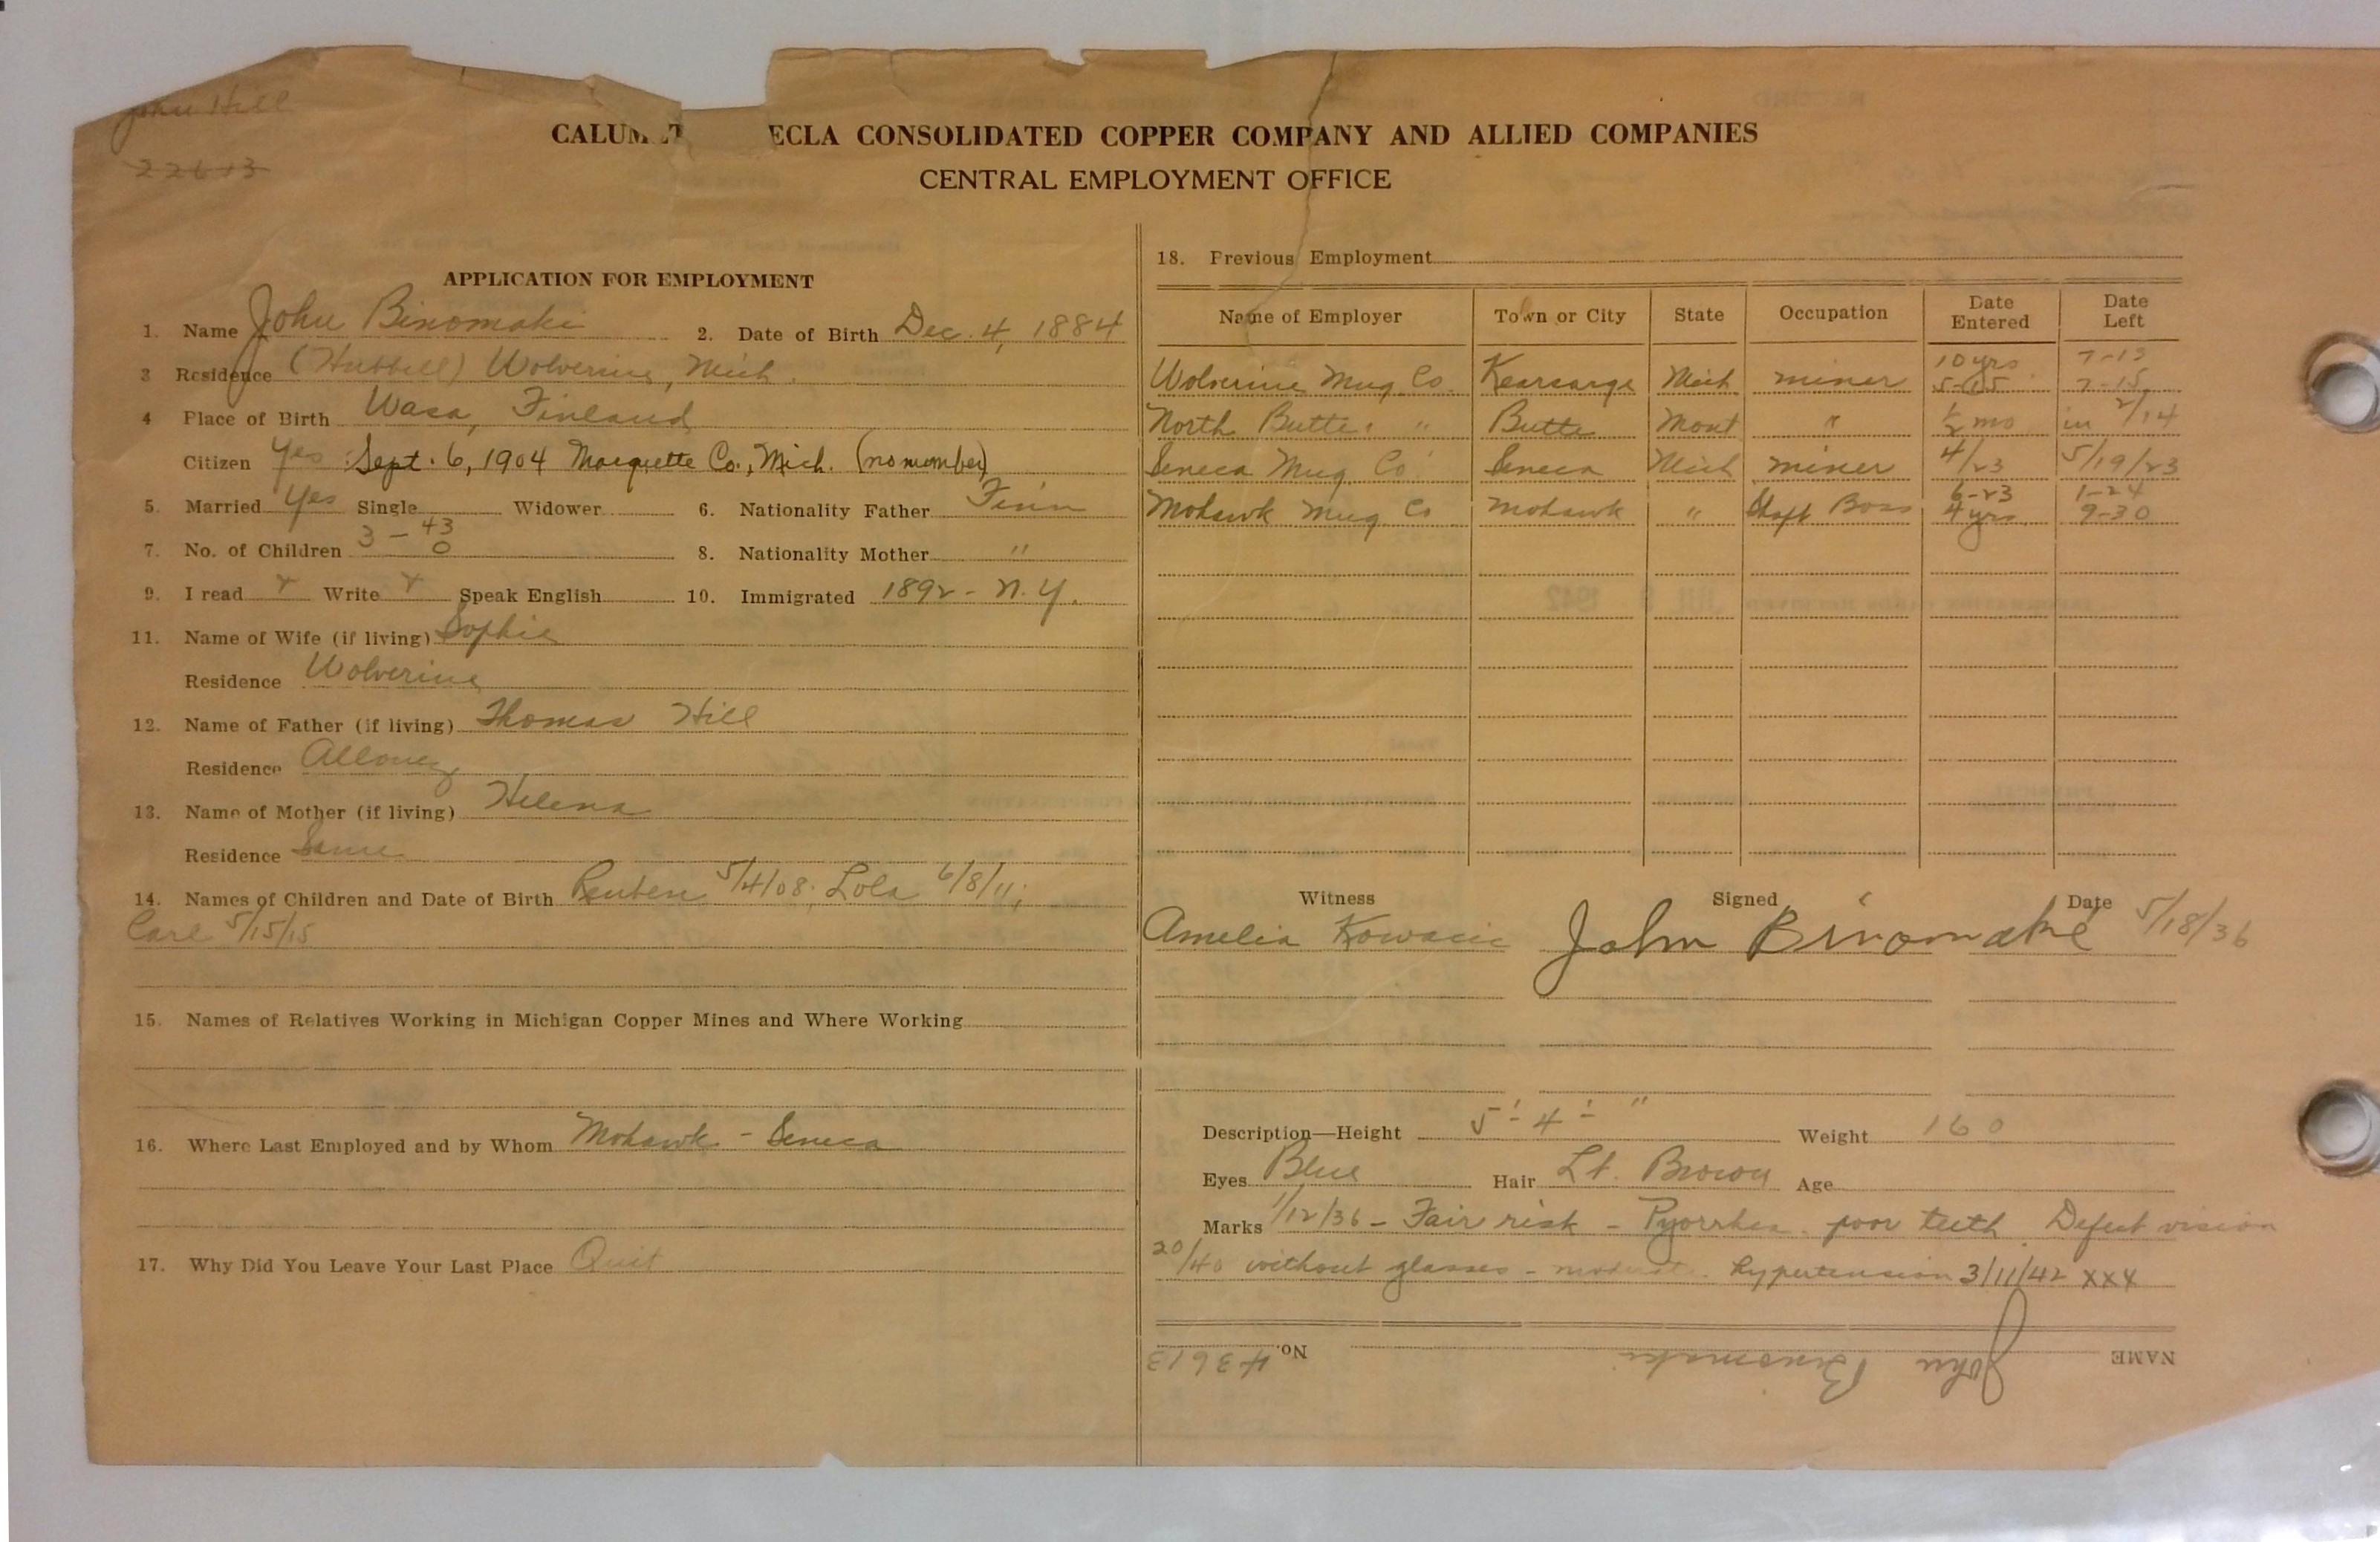 John Hill
22613
CALUM ET ECLA CONSOLIDATED COPPER COMPANY AND ALLIED COMPANIES
CENTRAL EMPLOYMENT OFFICE
APPLICATION FOR EMPLOYMENT
1. Name John Binomaki 2. Date of Birth Dec. 4, 1884
3 Residence (Hubbell) Wolverine, Mich.
4 Place of Birth Wasa, Finland
Citizen Yes Sept. 6, 1904 Marquette Co., Mich. (no number)
5. Married Yes Single Widower 6. Nationality Father Finn
7. No. of Children 3 - 43 0 8. Nationality Mother "
9. I read Write Speak English 10. Immigrated 1892 - N.Y.
11. Name of Wife (if living) Sophie
Residence Wolverine
12. Name of Father (if living) Thomas Hill
Residence Allouez
13. Name of Mother (if living) Helena
Residence Same
14. Names of Children and Date of Birth Reuben 5/4/08; Lola 6/8/11;
Carl 5/15/15
15. Names of Relatives Working in Michigan Copper Mines and Where Working
16. Where Last Employed and by Whom Mohawk - Seneca
17. Why Did You Leave Your Last Place Quit
18. Previous Employment
Name of Employer Town or City State Occupation Date Entered Date Left
10 yrs 7-13
Wolverine Mng Co. Kearsarge Mich miner 5-15 7-15
North Butte " Butte Mont " 1/2 mo in 2/14
Seneca Mng Co. Seneca Mich miner 4/23 5/19/23
6-23 1-24
Mohawk Mng Co Mohawk " Shaft Boss 4 yrs 9-30
Witness Signed Date
Amelia Kowacic John Binomaki 5/18/36
Description—Height 5'- 4 - " Weight 160
Eyes Blue Hair Lt. Brown Age
Marks 1/12/36 - Fair risk - Pyorrhea - poor teeth. Defect vision
20/40 without glasses - moderate hypertension 3/11/42 XXX
NAME John Binomaki No. 43613